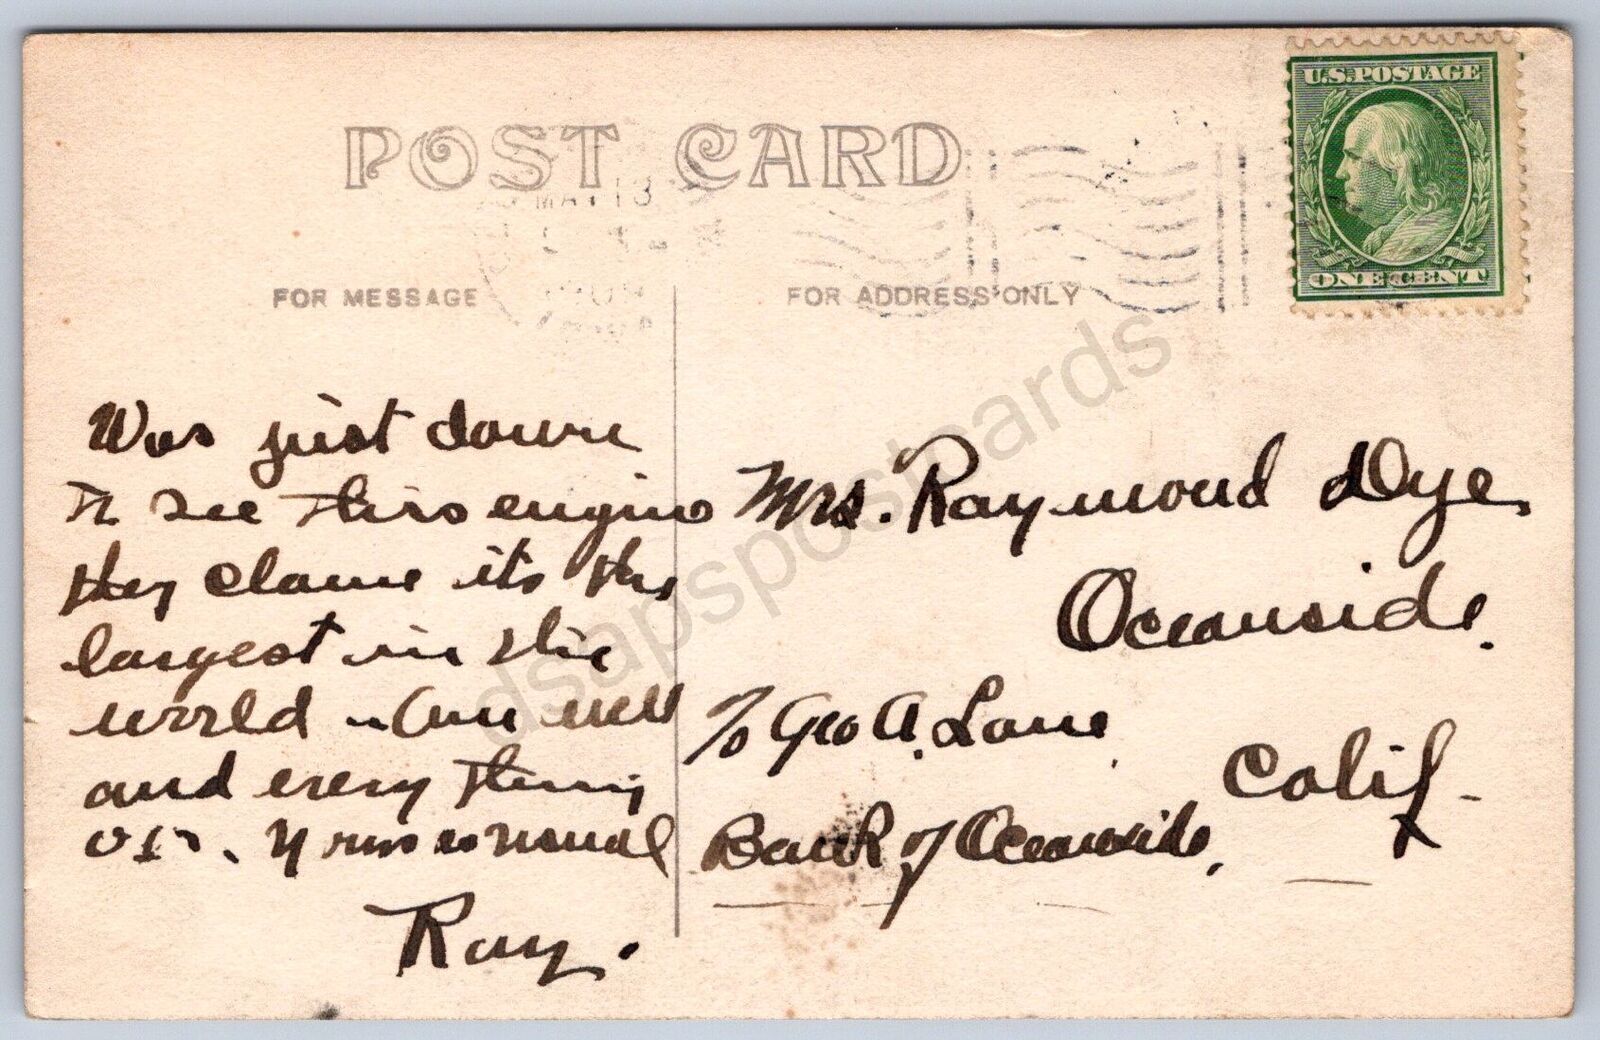 POST CARD
U.S. POSTAGE
ONE CENT
MAY 13
FOR MESSAGE
FOR ADDRESS ONLY
Was just down
to see this engine
they claim its the
largest in the
world – Am well
and every thing
O.K. Yours as usual
Ray.
Mrs. Raymond Dye
Oceanside.
c/o Geo A. Lane
Calif -
Bank of Oceanside,
dsapspostcards